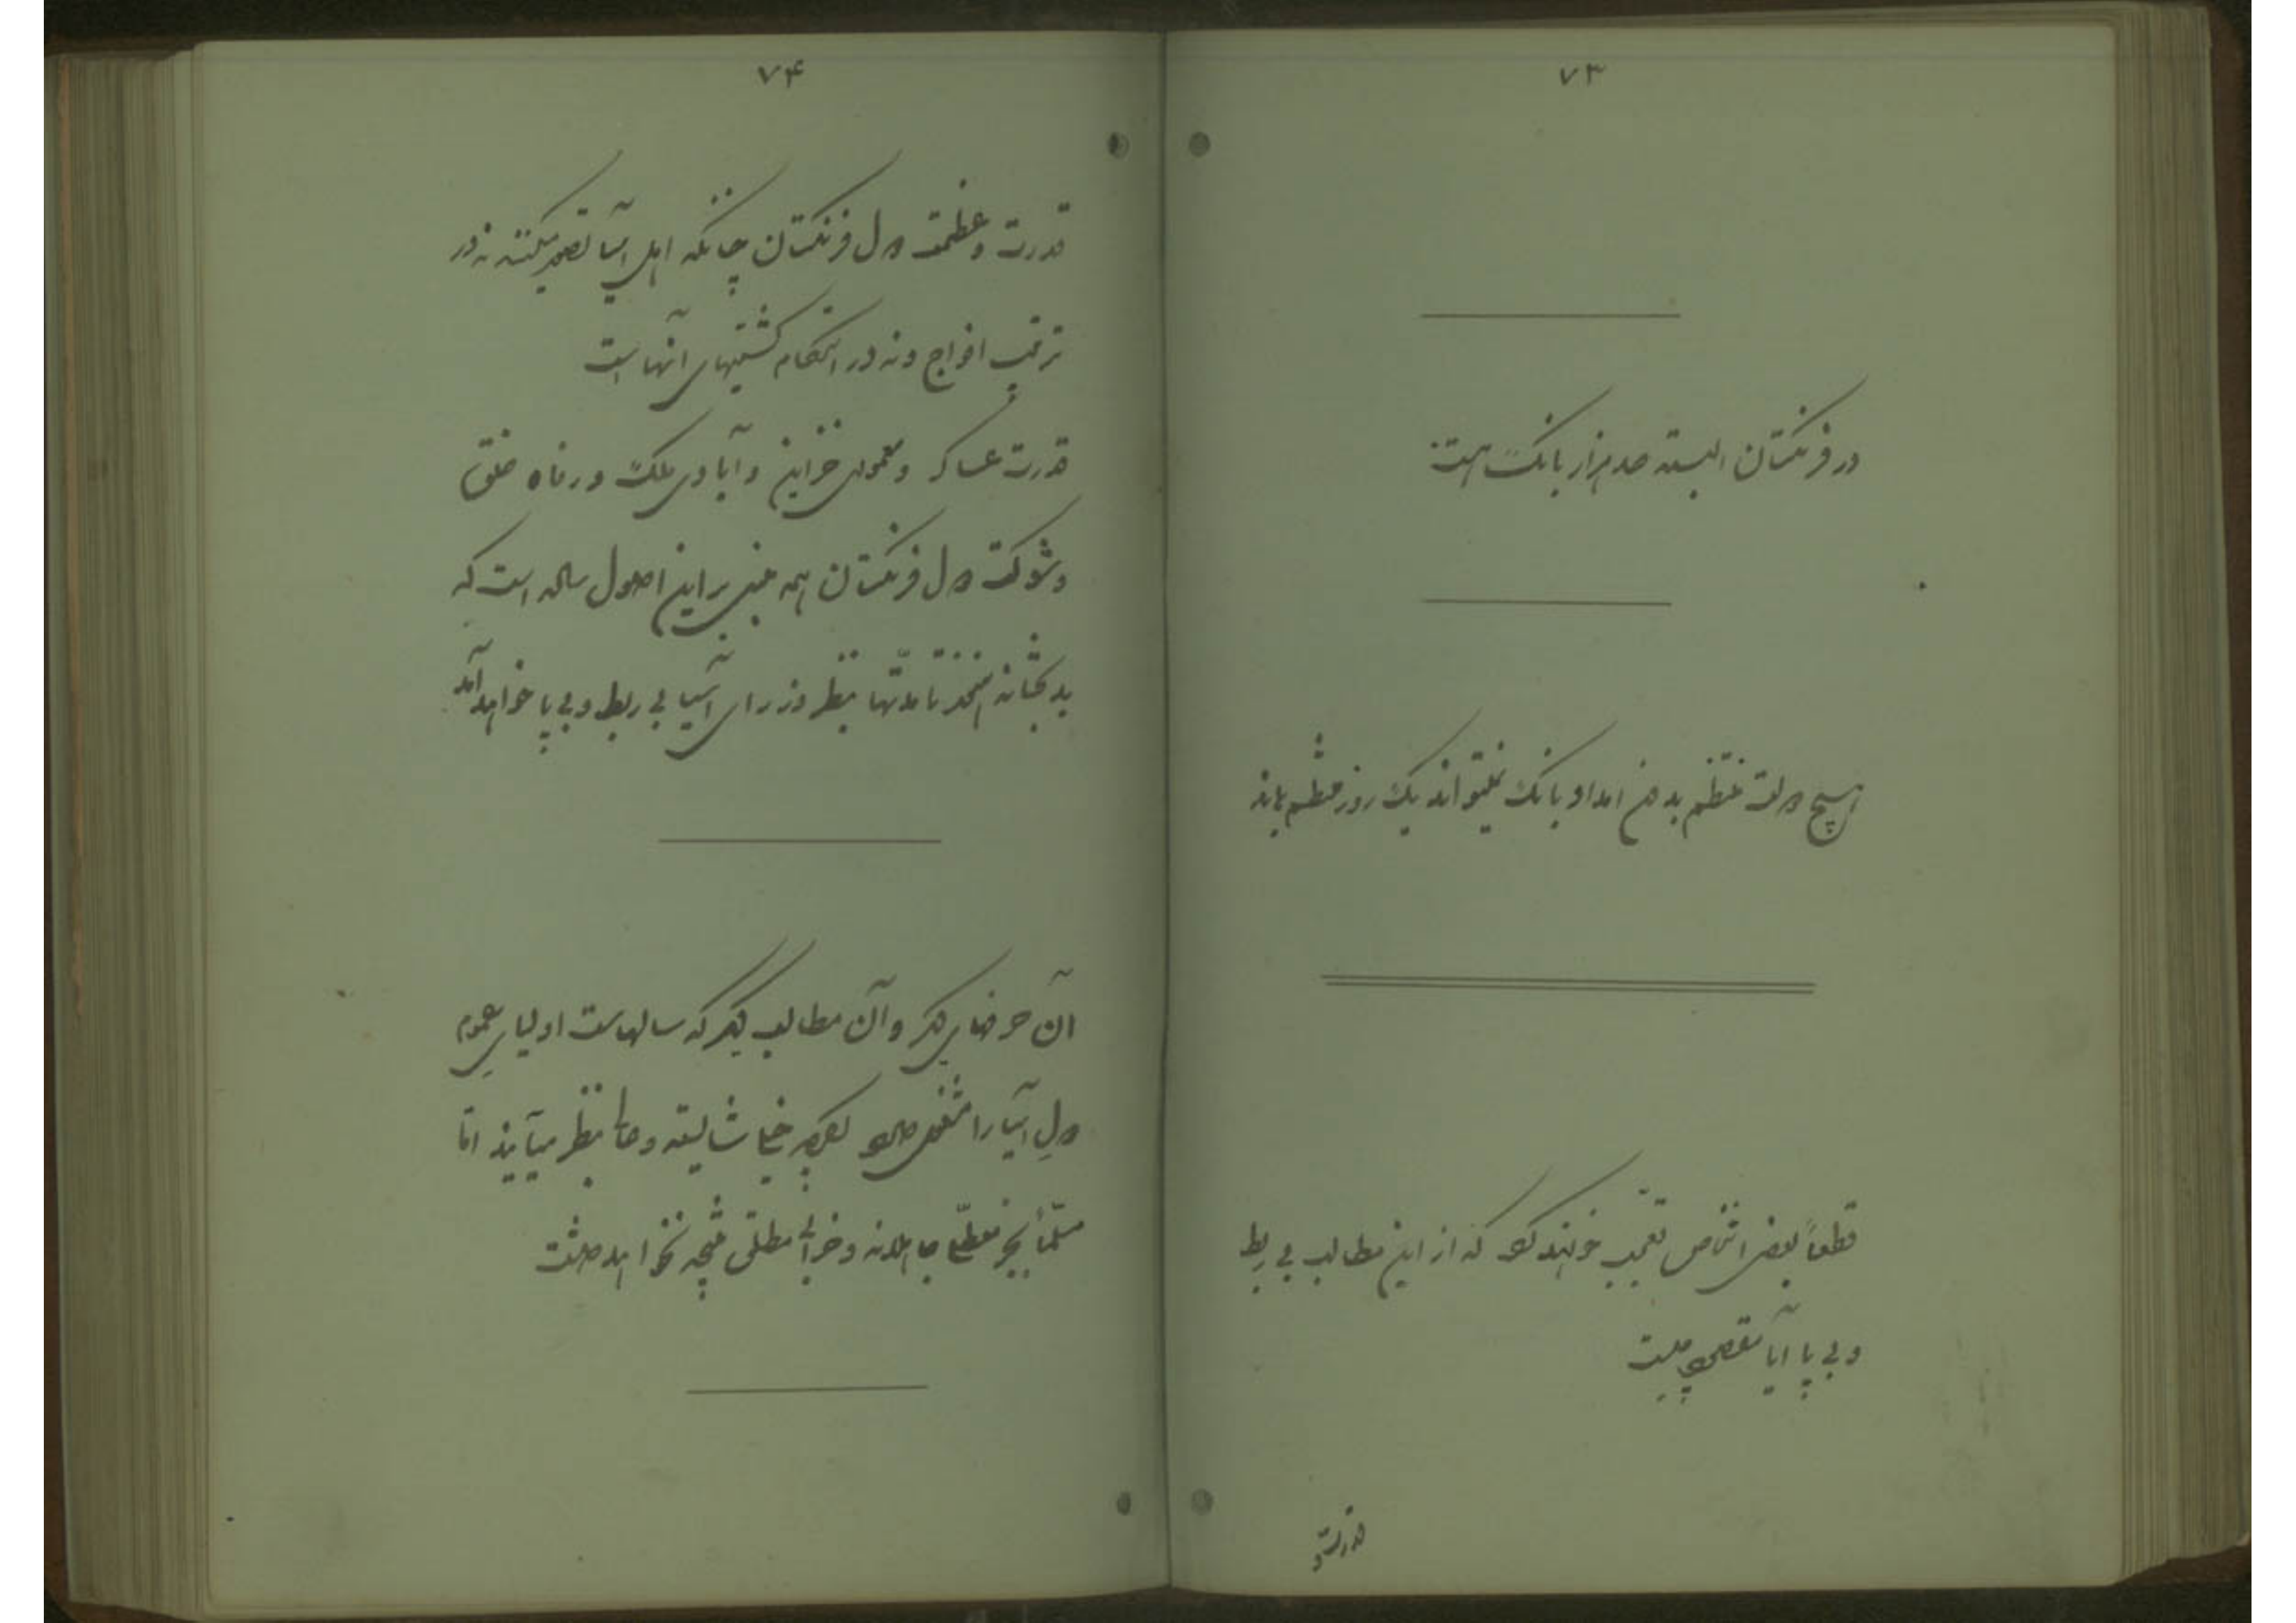 ۷۳
در فرنگستان البته صد هزار بانک هست
هیچ دولت منتظم بدون امداد بانک نمیتواند یک روز منتظم بماند
قطعاً بعضی اشخاص تعجب خواهند کرد که از این مطالب بی ربط
و بی پا آیا مقصود چیست
قدرت و
۷۴
قدرت و عظمت دول فرنگستان چنانکه اهل آسیا تصور میکنند نه در
ترتیب افواج و نه در استحکام کشتیهای آنها است
قدرت عساکر و معموری خزاین و آبادی ملک و رفاه خلق
و شوکت دول فرنگستان همه مبنی بر این اصول ساله است که
بدبختانه تا مدتها بنظر وزرای آسیا بی ربط و بی پا خواهد آمد
آن حرفهای دیگر و آن مطالب دیگر که سالهاست اولیای عموم
دول آسیا را مشغول خیلی شایسته و عالی بنظر میآیند امّا
مسلّماً بجز معطلی جاهلانه و خرابی مطلق نتیجه نخواهد داشت